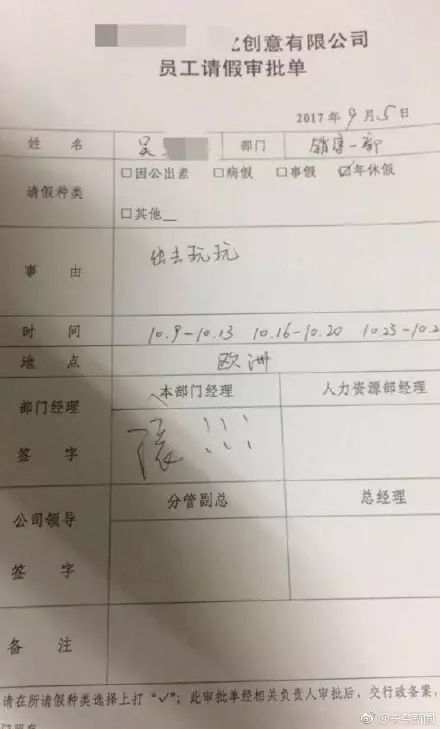 创意有限公司
员工请假审批单
2017年9月5日
姓名 吴 部门 销售一部
请假种类 □因公出差 □病假 □事假 ☑年休假
□其他__
事由 出去玩玩
时间 10.9-10.13 10.16-10.20 10.23-10.2
地点 欧洲
部门经理签字 本部门经理 人力资源部经理
滚!!!
公司领导签字 分管副总 总经理
备注
请在所请假种类选择上打“✓”；此审批单经相关负责人审批后、交行政备案，
@头条新闻